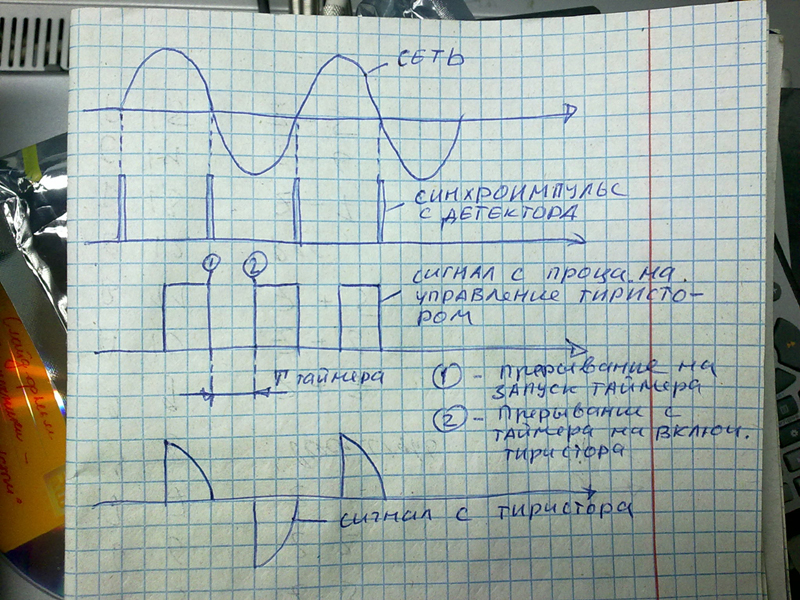 СЕТЬ
СИНХРОИМПУЛЬС
С ДЕТЕКТОРА
① ②
СИГНАЛ С ПРОЦА НА.
УПРАВЛЕНИЕ ТИРИСТО-
РОМ
T таймера
① - Прерывание на
ЗАПУСК ТАЙМЕРА
② - Прерывание с
ТАЙМЕРА НА ВКЛЮЧ.
ТИРИСТОРА
СИГНАЛ С ТИРИСТОРА